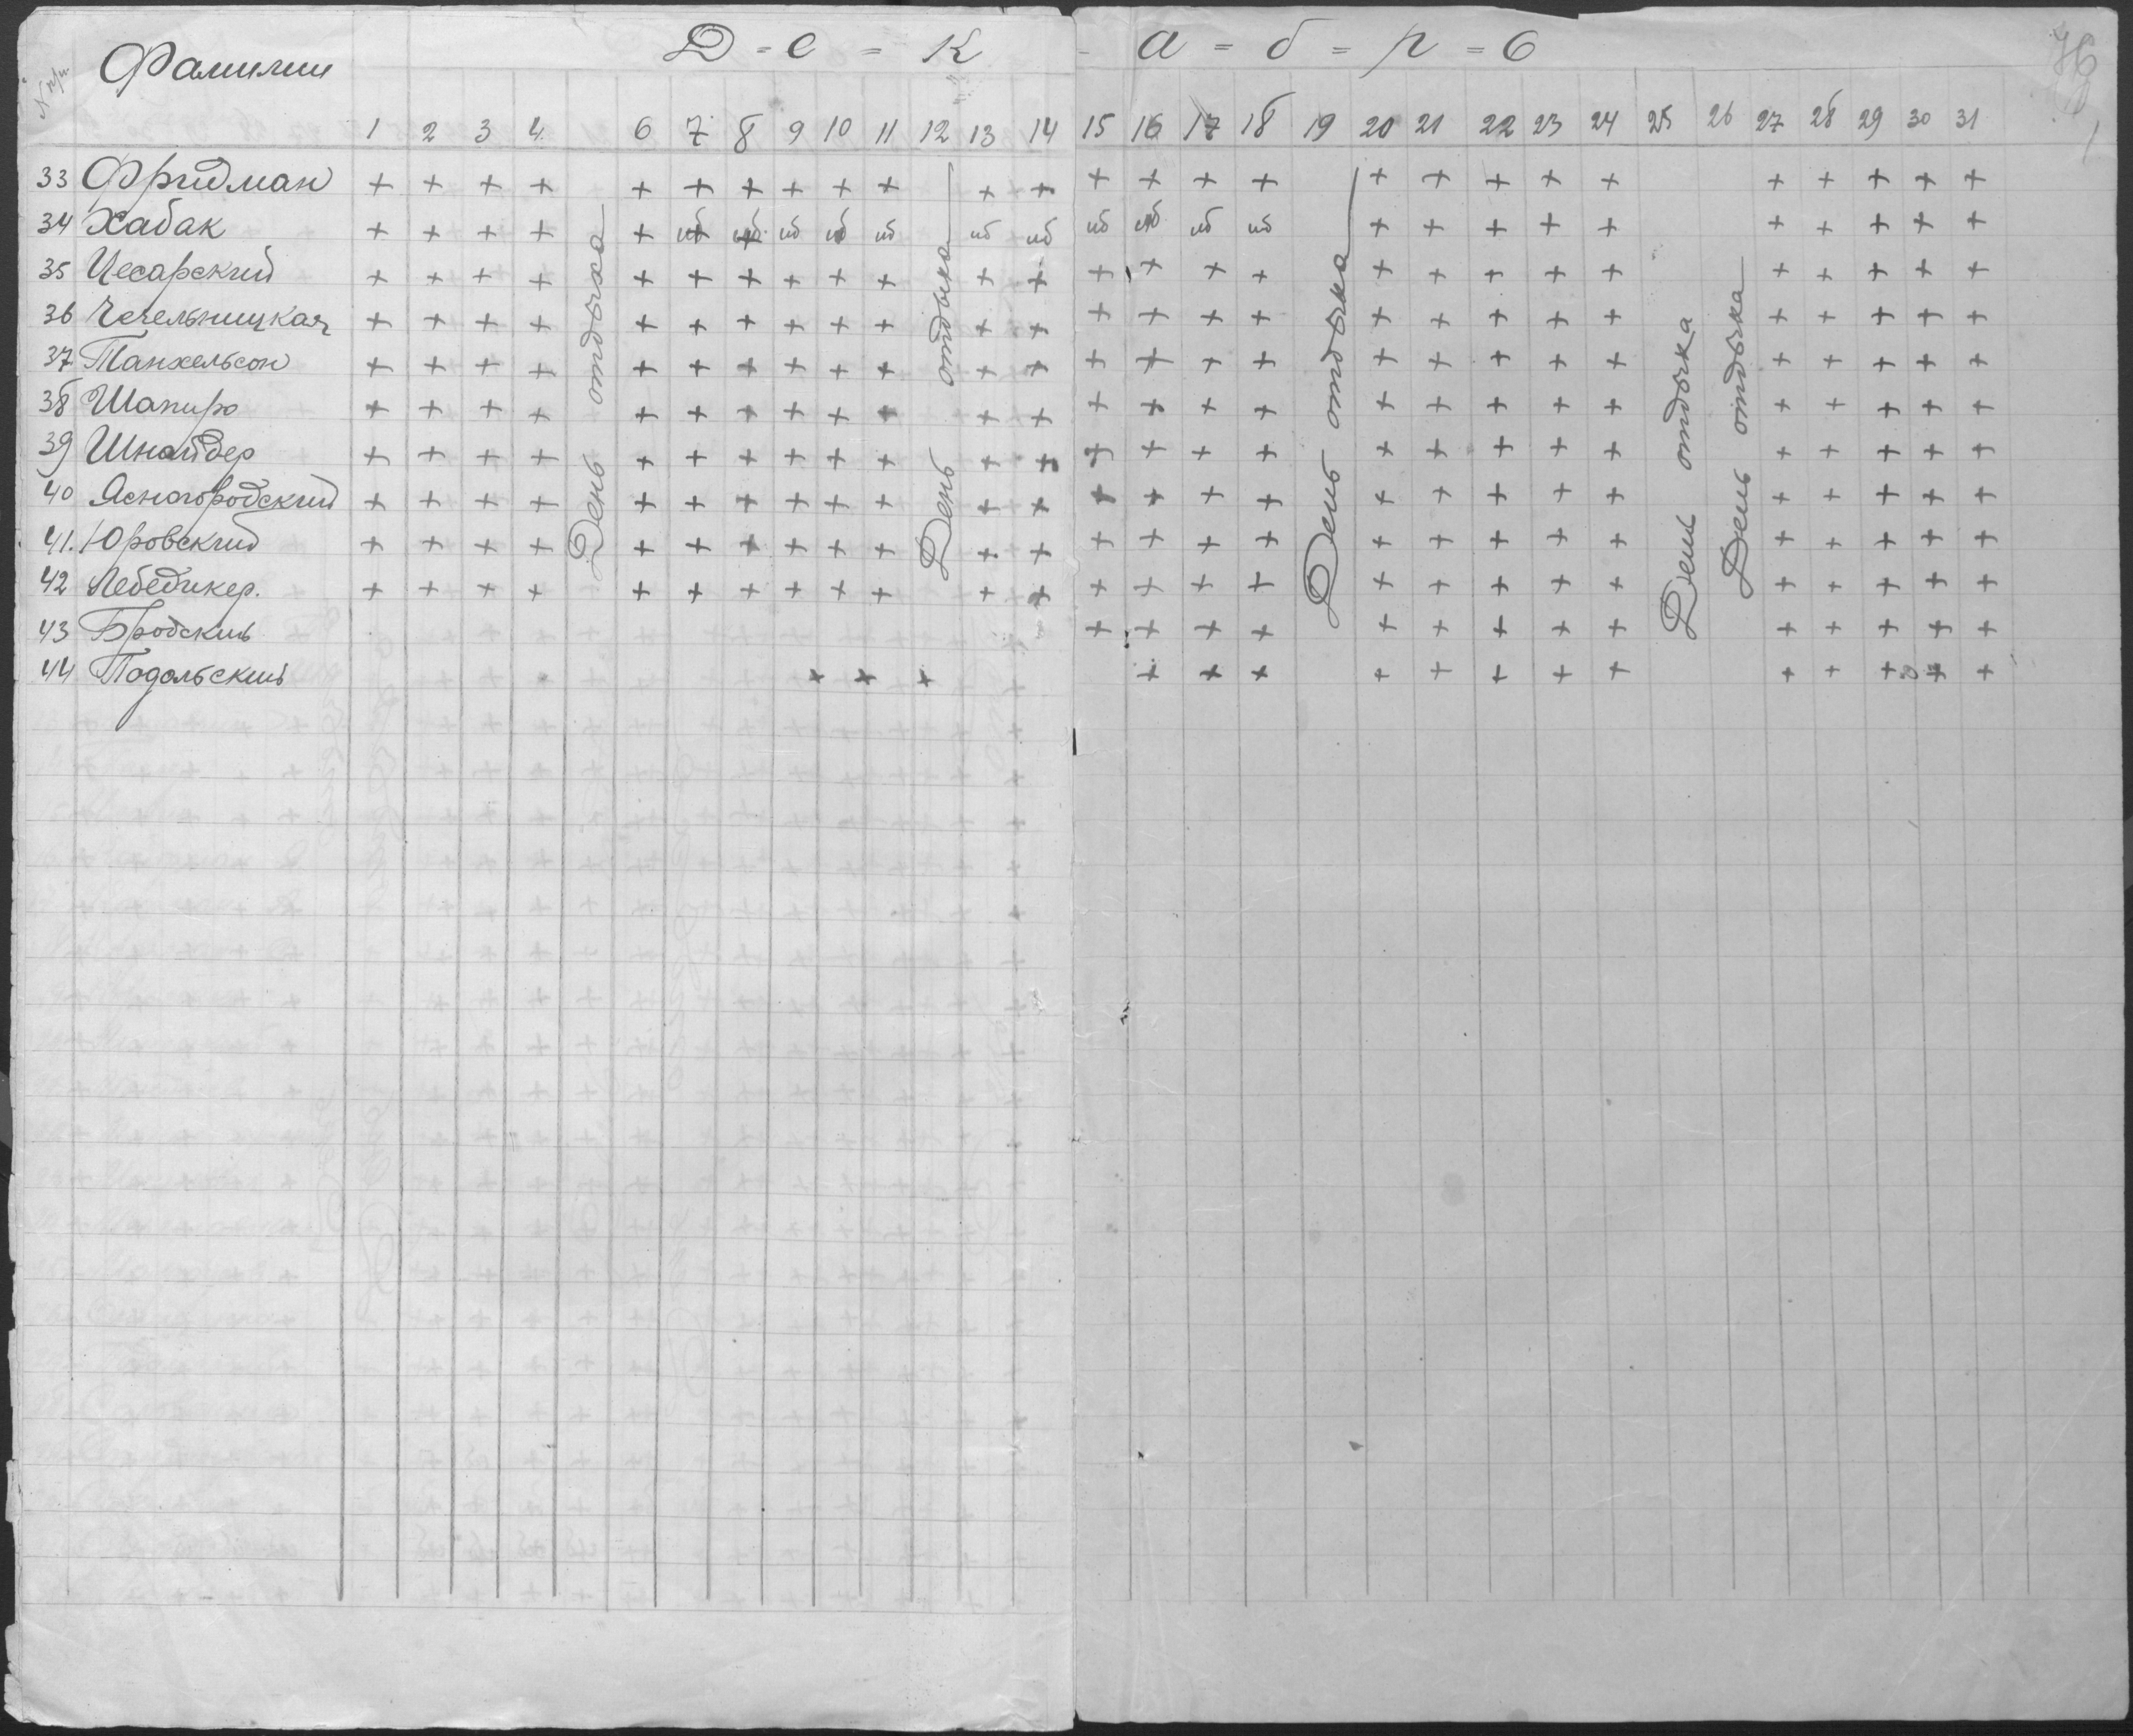 Фамилии Д = е = к = а = б = р = ь 76
1 2 3 4 6 7 8 9 10 11 12 13 14 15 16 17 18 19 20 21 22 23 24 25 26 27 28 29 30 31
33 Фридман + + + + + + + + + + + + + + + + + + + + + + + + + +
34 Хабак + + + + + иб иб иб иб иб иб иб иб иб иб иб + + + + + + + + + +
35 Цесарский + + + + + + + + + + + + + + + + + + + + + + + + + +
36 Чечельницкая + + + + + + + + + + + + + + + + + + + + + + + + + +
37 Танхельсон + + + + + + + + + + + + + + + + + + + + + + + + + +
38 Шапиро + + + + + + + + + + + + + + + + + + + + + + + + + +
39 Шнайдер + + + + + + + + + + + + + + + + + + + + + + + + + +
40 Ясногородский + + + + + + + + + + + + + + + + + + + + + + + + + +
41. Юровский + + + + + + + + + + + + + + + + + + + + + + + + + +
42 Лебедикер. + + + + + + + + + + + + + + + + + + + + + + + + + +
43 Бродский + + + + + + + + + + + + + +
44 Подольский + + + + + + + + + + + + + + + +
День отдыха
День отдыха
День отдыха
День отдыха
День отдыха